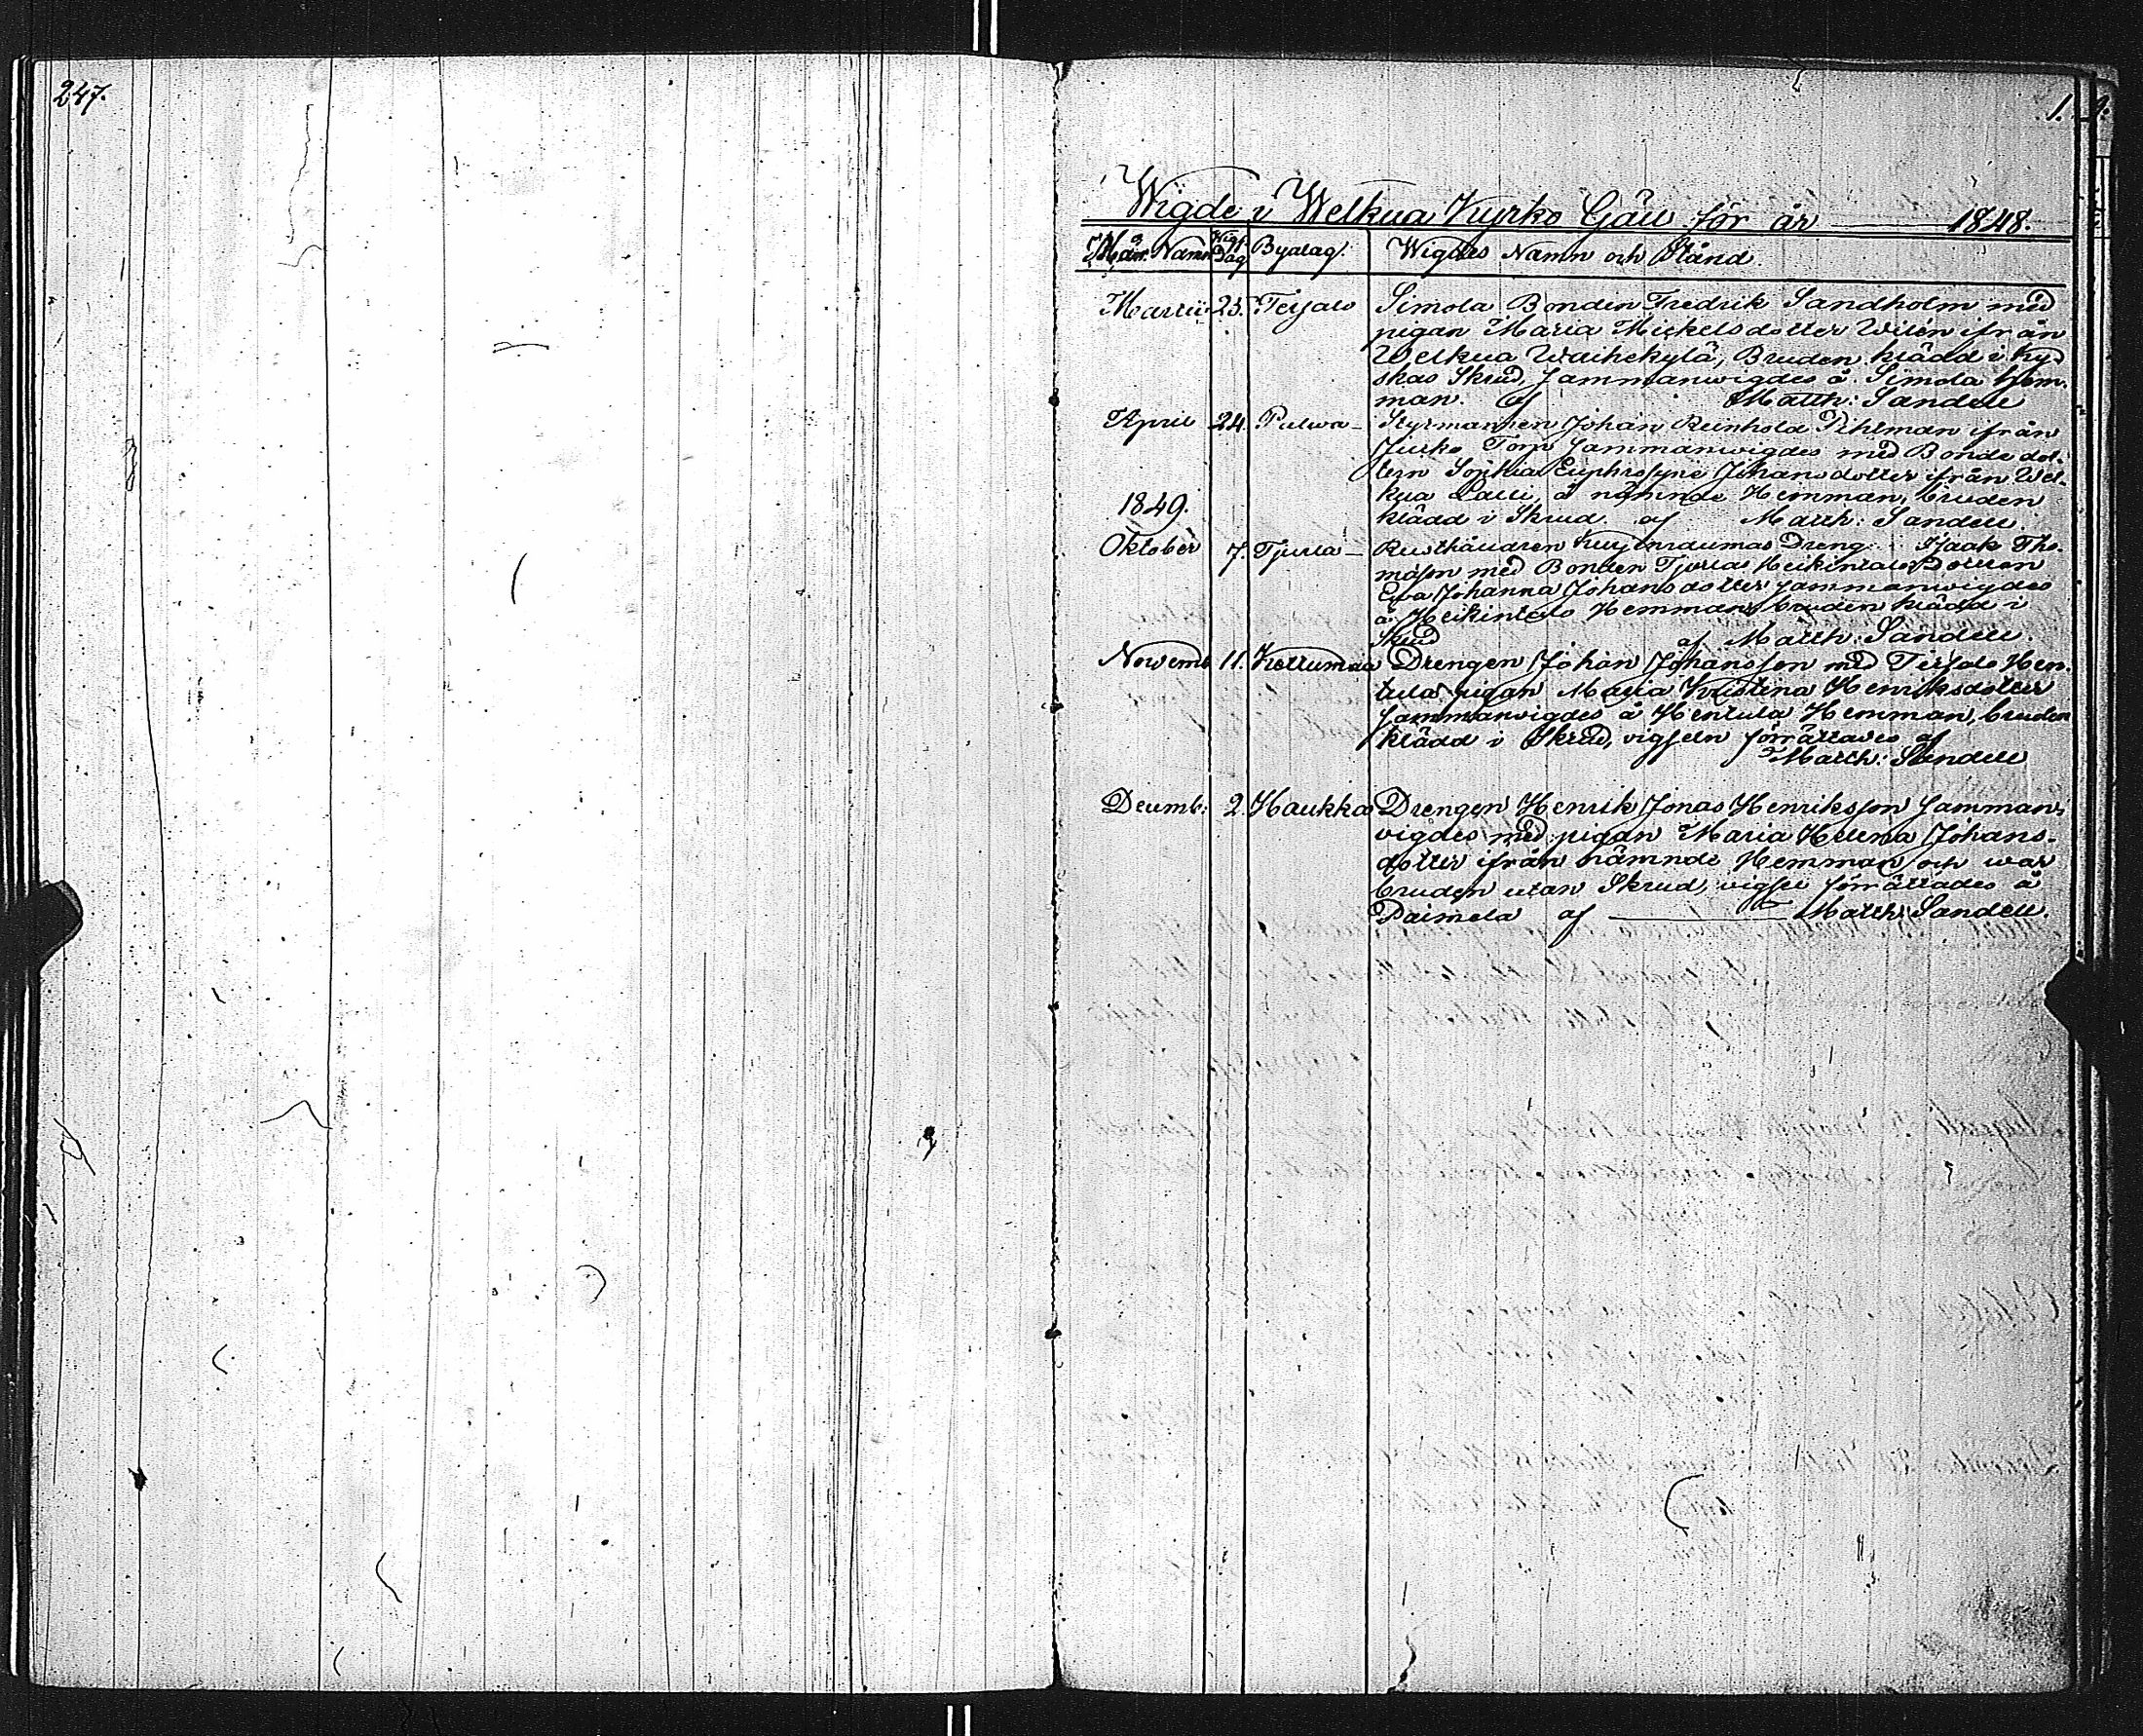 247.
1.
Wigde i Welkua Kyrko Gäll för år 1848.
Mån. Namn Wigs. Dag Byalag. Wigdes Namn och Stånd.
Martii 25. Tersalo Simola Bonden Fredrik Sandholm med
pigan Maria Mickelsdotter Wilén ifrån
Welkua Waihekylä, Bruden klädd i kyr-
skas Skrud, Sammanwigdes å Simola hem-
man. af Matth: Sandell
April 24. Palwa Styrmannen Johan Reinhold Pihlman ifrån
Torp Sammanwigdes med Bonde dot-
tern Sophia Euphrosyne Johansdotter ifrån Wel-
kua å nämnde Hemman, bruden
1849.
klädd i Skrud. af Matth: Sandell.
Oktober 7. Tjurla Dreng Isaak Tho-
masson med Bonden Tjurlas Heikintalo Dottren
Ewa Johanna Johansdotter sammanwigdes
å Heikintalo Hemman, bruden klädd i
Skrud af Matth: Sandell.
Novemb 11. Kettumaa Drengen Johan Johansson med Tersalo Hen-
tula pigan Maria Kristina Henriksdotter
Sammanvigdes å Hentula Hemman, bruden
klädd i Skrud, vigseln förrättades af
Matth: Sandell
Decemb: 2. Haukka Drengen Henrik Jonas Henriksson Samman-
vigdes med pigan Maria Helena Johans-
dotter ifrån nämnde Hemman och war
bruden utan Skrud, vigsel förrättades å
Paimela af Matth: Sandell.